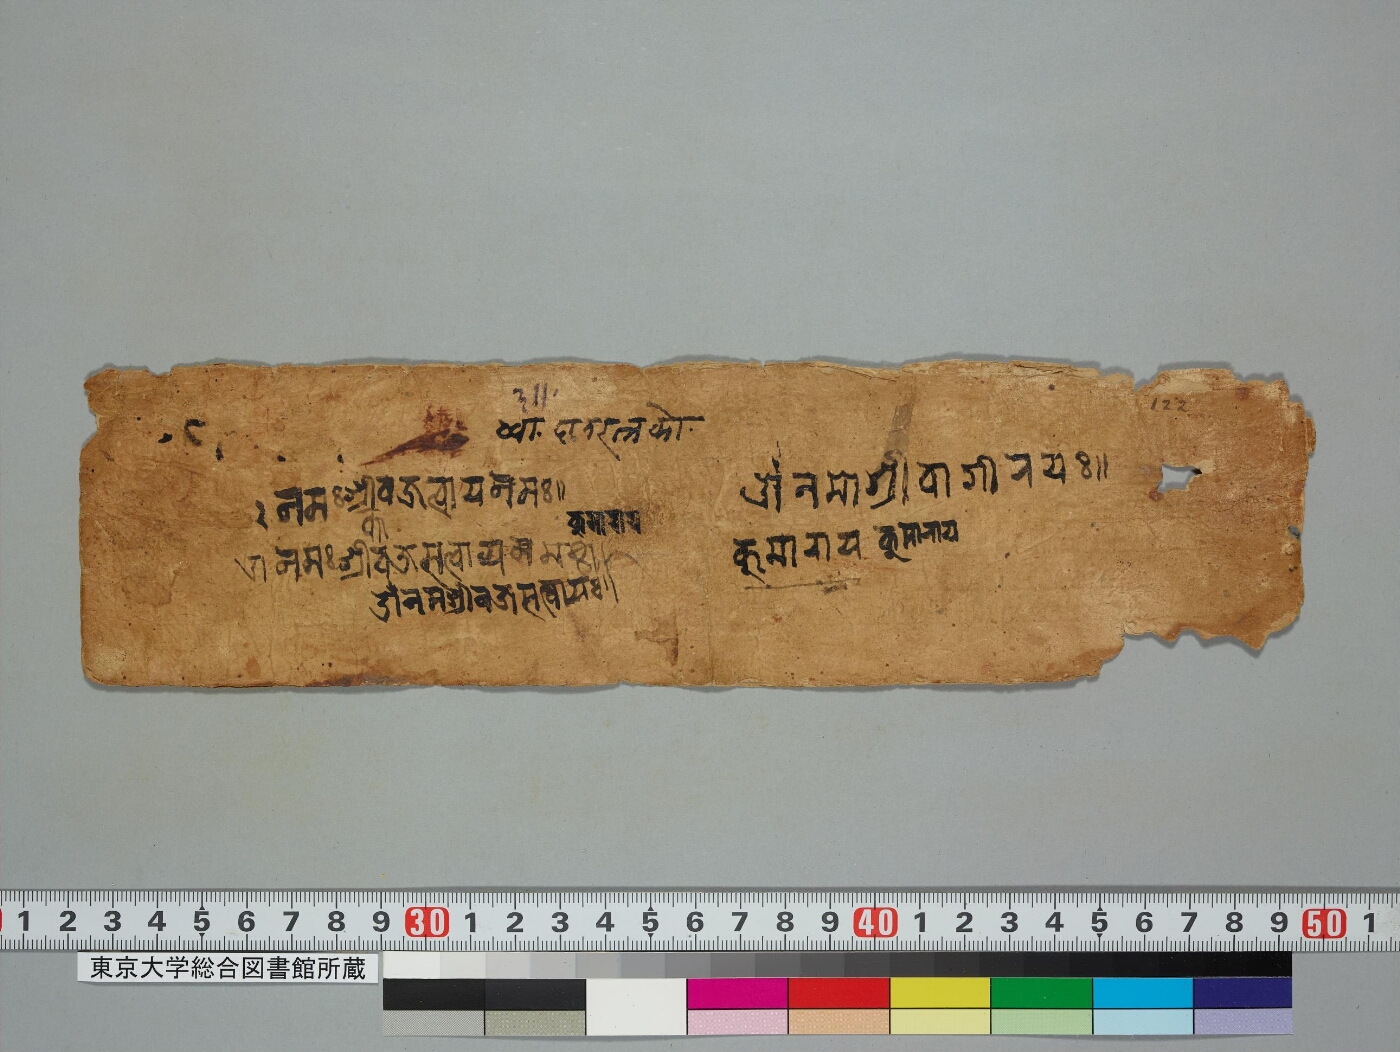 ३॥
122
नमः श्रीवज्रत्वाय नमः॥
ॐ नमो श्री वागी नयः॥
कुमाराय
कुमाराय कुमाराय
नमः श्रीवज्रसत्वाय नम
ॐ नम श्रीवज्रसत्वायः॥
1 2 3 4 5 6 7 8 9 30 1 2 3 4 5 6 7 8 9 40 1 2 3 4 5 6 7 8 9 50 1
東京大学総合図書館所蔵